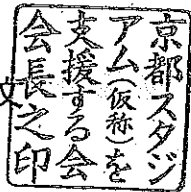 京都スタジ
アム(仮称)を
支援する会
会長之印